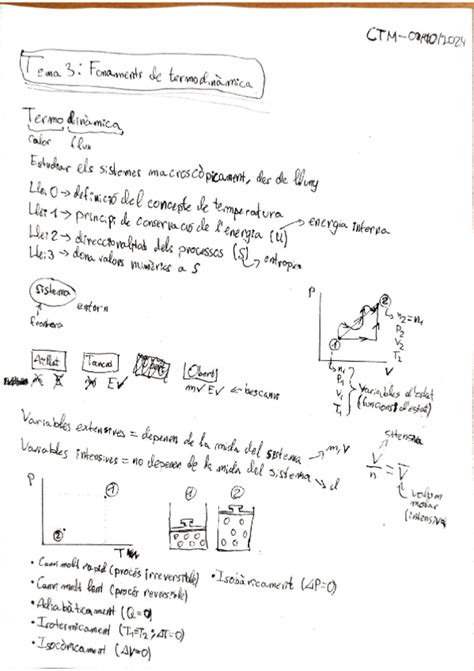 CTM-07/10/2024
Tema 3: Fonaments de termodinàmica
Termodinàmica
calor flux
Estudiar els sistemes macroscòpicament, des de lluny
Llei 0 → definició del concepte de temperatura
Llei 1 → principi de conservació de l'energia (U) → energia interna
Llei 2 → direccionalitat dels processos (S) → entropia
Llei 3 → dona valors numèrics a S
sistema
entorn
frontera
P
2
n2=n1
P2
V2
T2
1
V
n1
P1
V1
T1
variables d'estat
(funcions d'estat)
Aïllat Tancat Obert
m E m E✓ m✓ E✓ ←
Variables extensives = depenen de la mida del sistema → m, V
Variables intensives = no depenen de la mida del sistema → d
extensiva
V/n = V̅
volum
molar
(intensiva)
P
1
2
T
1 2
• Canvi molt ràpid (procés irreversible) • Isobàricament (ΔP=0)
• Canvi molt lent (procés reversible)
• Adiabàticament (Q=0)
• Isotèrmicament (T1=T2; ΔT=0)
• Isocòricament (ΔV=0)